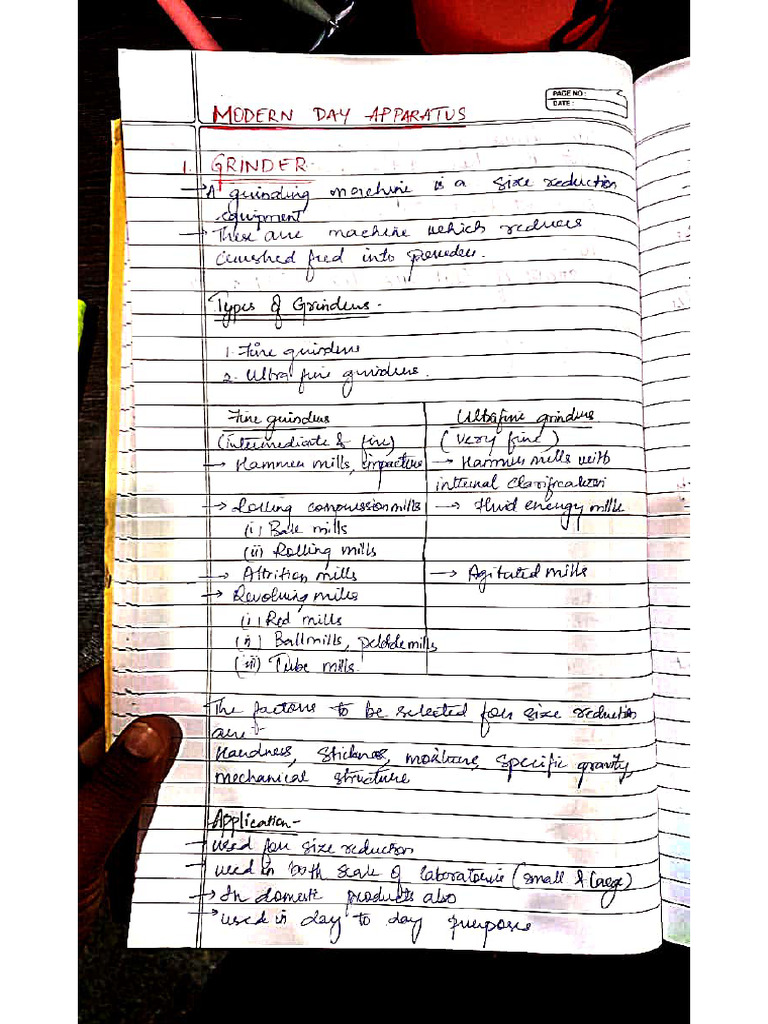 PAGE NO :
DATE :
MODERN DAY APPARATUS
1. GRINDER-
→ A grinding machine is a size reduction
equipment
→ These are machine which reduces
crushed feed into powder.
Types of Grinders-
1. Fine grinders
2. Ultra fine grinders.
Fine grinders
(intermediate & fine)
→ Hammer mills, impactors
→ Rolling compression mills
(i) Bale mills
(ii) Rolling mills
→ Attrition mills
→ Revolving mills
(i) Rod mills
(ii) Ball mills, mills
(iii) Tube mills.
Ultrafine grinders
(very fine)
→ Hammer mills with
internal clarification
→ Fluid energy mills
→ Agitated mills
The factors to be selected for size reduction
are-
Hardness, stickness, moisture, specific gravity,
mechanical structure
Application-
→ used for size reduction
→ used in both scale of laboratories (small & large)
→ In domestic products also
→ used in day to day purposes